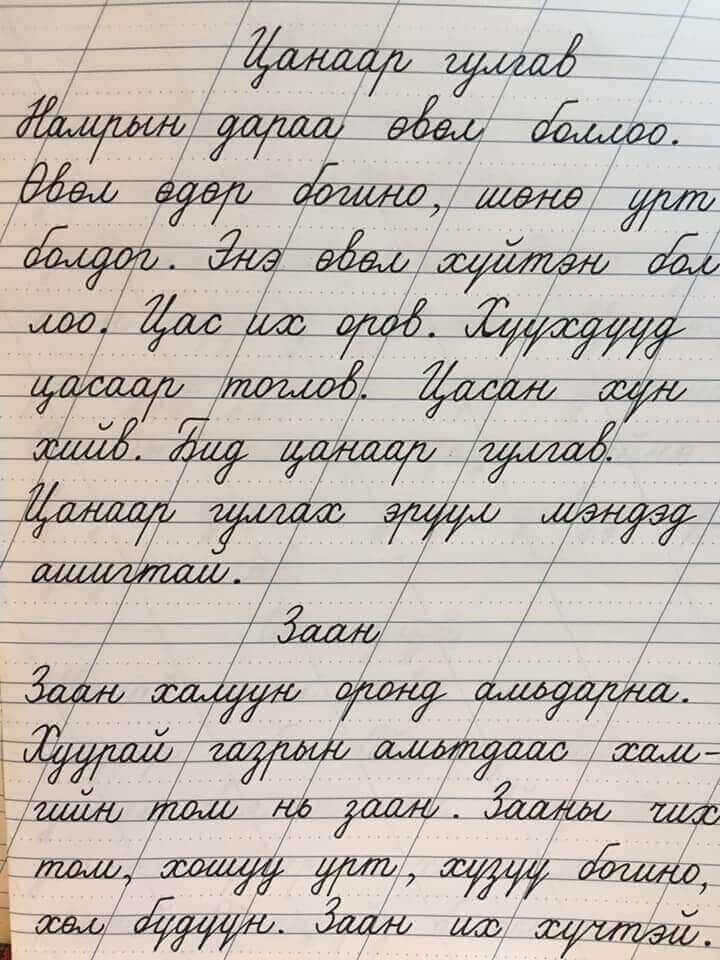 Цанаар гулгав
Намрын дараа өвөл боллоо.
Өвөл өдөр богино, шөнө урт
болдог. Энэ өвөл хүйтэн бол
лоо. Цас их оров. Хүүхдүүд
цасаар тоглов. Цасан хүн
хийв. Бид цанаар гулгав.
Цанаар гулгах эрүүл мэндэд
ашигтай.
Заан
Заан халуун оронд амьдарна.
Хуурай газрын амьтдаас хам-
гийн том нь заан. Зааны чих
том, хошуу урт, хүзүү богино,
хөл бүдүүн. Заан их хүчтэй.